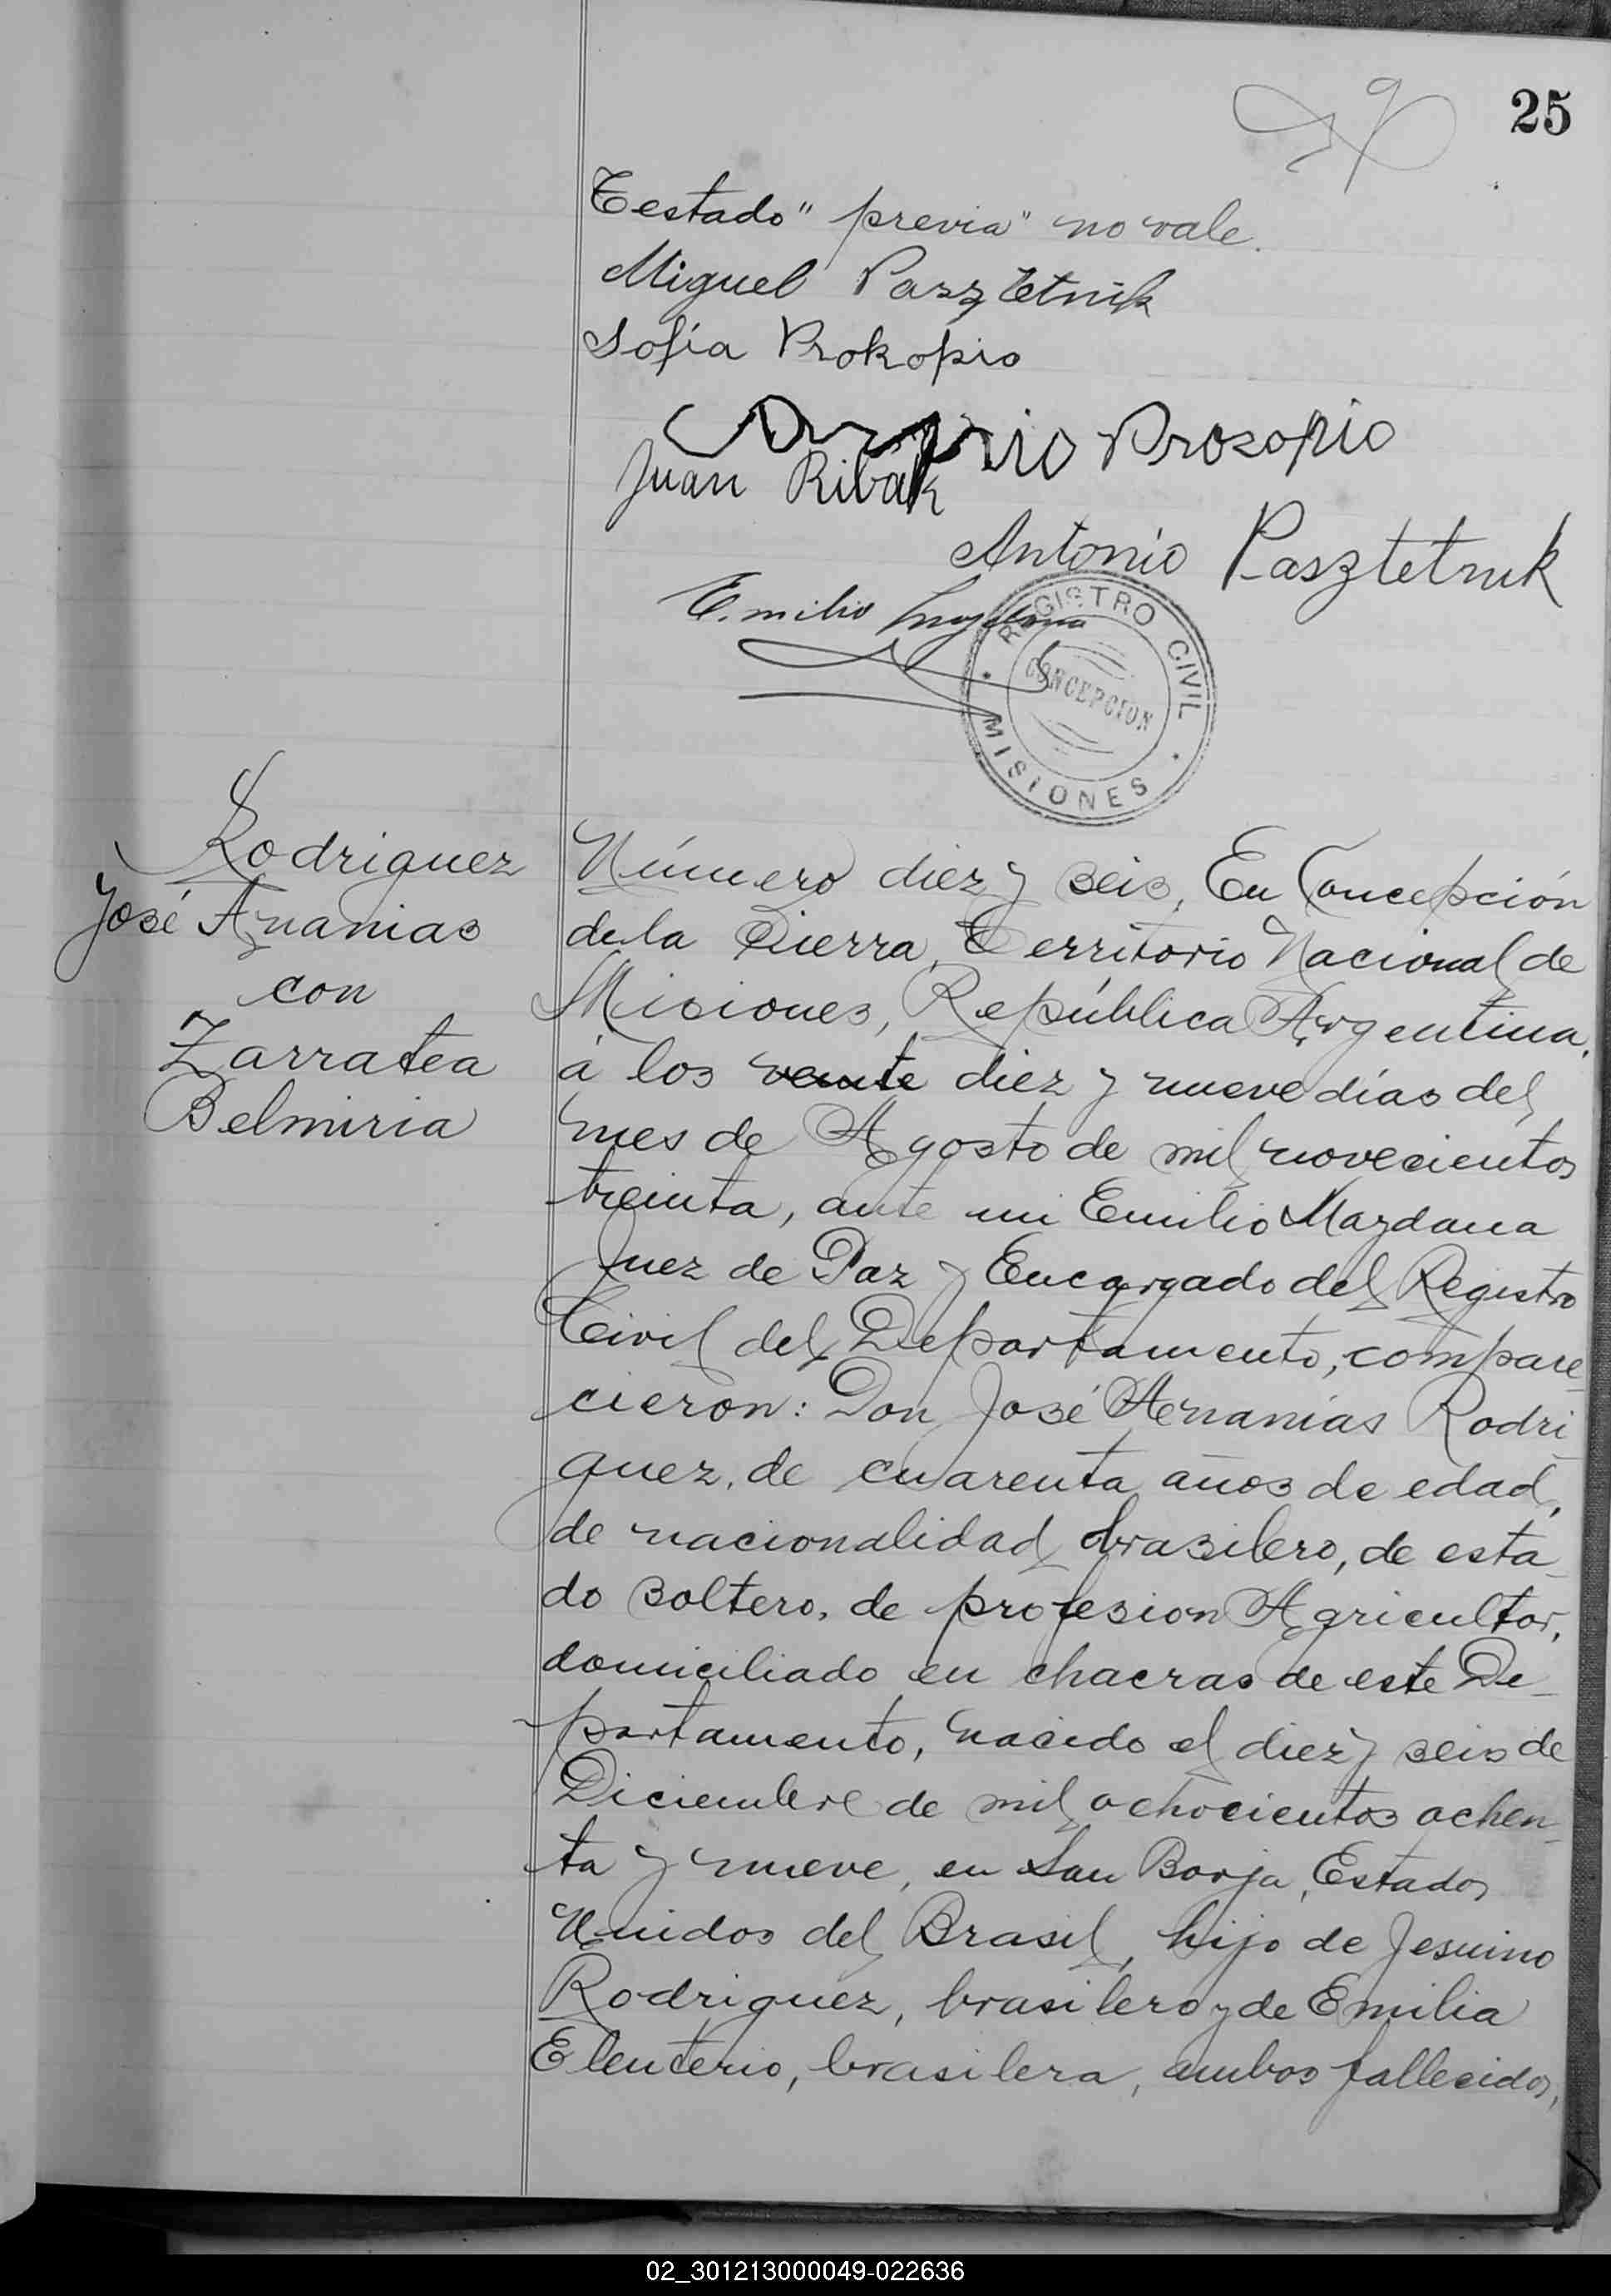 25
Testado "previa" no vale.
Miguel Pasztetnik
Sofía Prokopio
Prosopio
Juan Ribak
Antonio Pasztetnik
Emilio
REGISTRO CIVIL
CONCEPCION
MISIONES
Rodriguez
José Ananias
con
Zarratea
Belmiria
Número diez y seis, En Concepción
de la Sierra, Territorio Nacional de
Misiones, República Argentina,
á los veinte diez y nueve días del
mes de Agosto de mil novecientos
treinta, ante mi Emilio Mazdana
Juez de Paz y Encargado del Registro
Civil del Departamento, compare_
cieron: Don José Ananías Rodri_
guez, de cuarenta años de edad,
de nacionalidad brasilero, de esta_
do soltero, de profesion Agricultor,
domiciliado en chacras de este De_
partamento, nacido el diez y seis de
Diciembre de mil ochocientos ochen_
ta y nueve, en San Borja, Estados
Unidos del Brasil, hijo de Jesuino
Rodriguez, brasilero y de Emilia
Eleuterio, brasilera, ambos fallecidos,
02_301213000049-022636